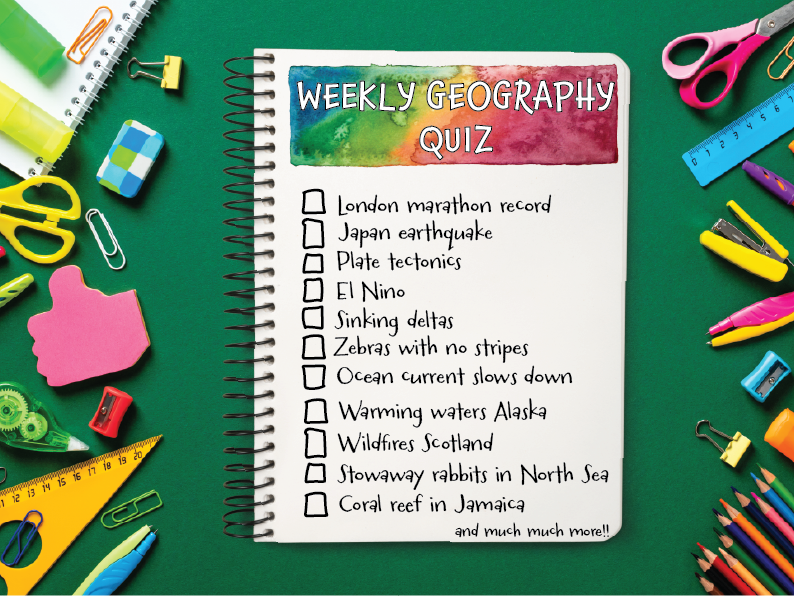 WEEKLY GEOGRAPHY
QUIZ
London marathon record
Japan earthquake
Plate tectonics
El Nino
Sinking deltas
Zebras with no stripes
Ocean current slows down
Warming waters Alaska
Wildfires Scotland
Stowaway rabbits in North Sea
Coral reef in Jamaica
and much much more!!
0 1 2 3 4 5 6 7
11 12 13 14 15 16 17 18 19 20